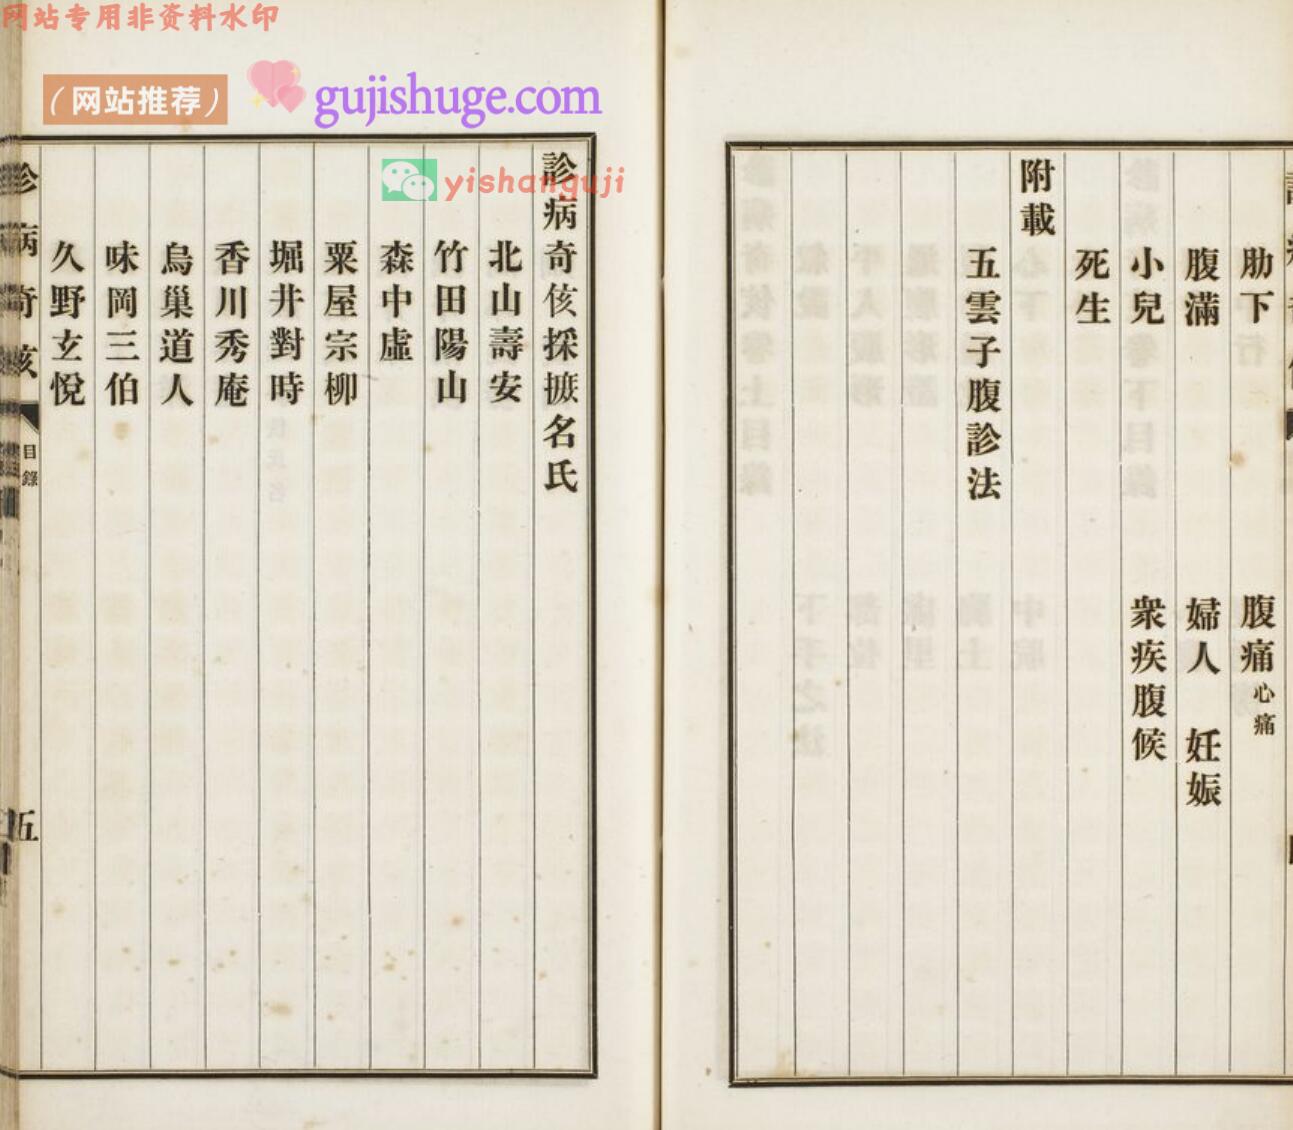 网站专用非资料水印
(网站推荐)
gujishuge.com
yishanguji
肋下 腹痛心痛
腹滿 婦人 妊娠
小兒 衆疾腹候
死生
附載
五雲子腹診法
診病奇侅採摭名氏
北山壽安
竹田陽山
森中虛
粟屋宗柳
堀井對時
香川秀庵
烏巢道人
味岡三伯
久野玄悅
診病奇侅
目錄
五